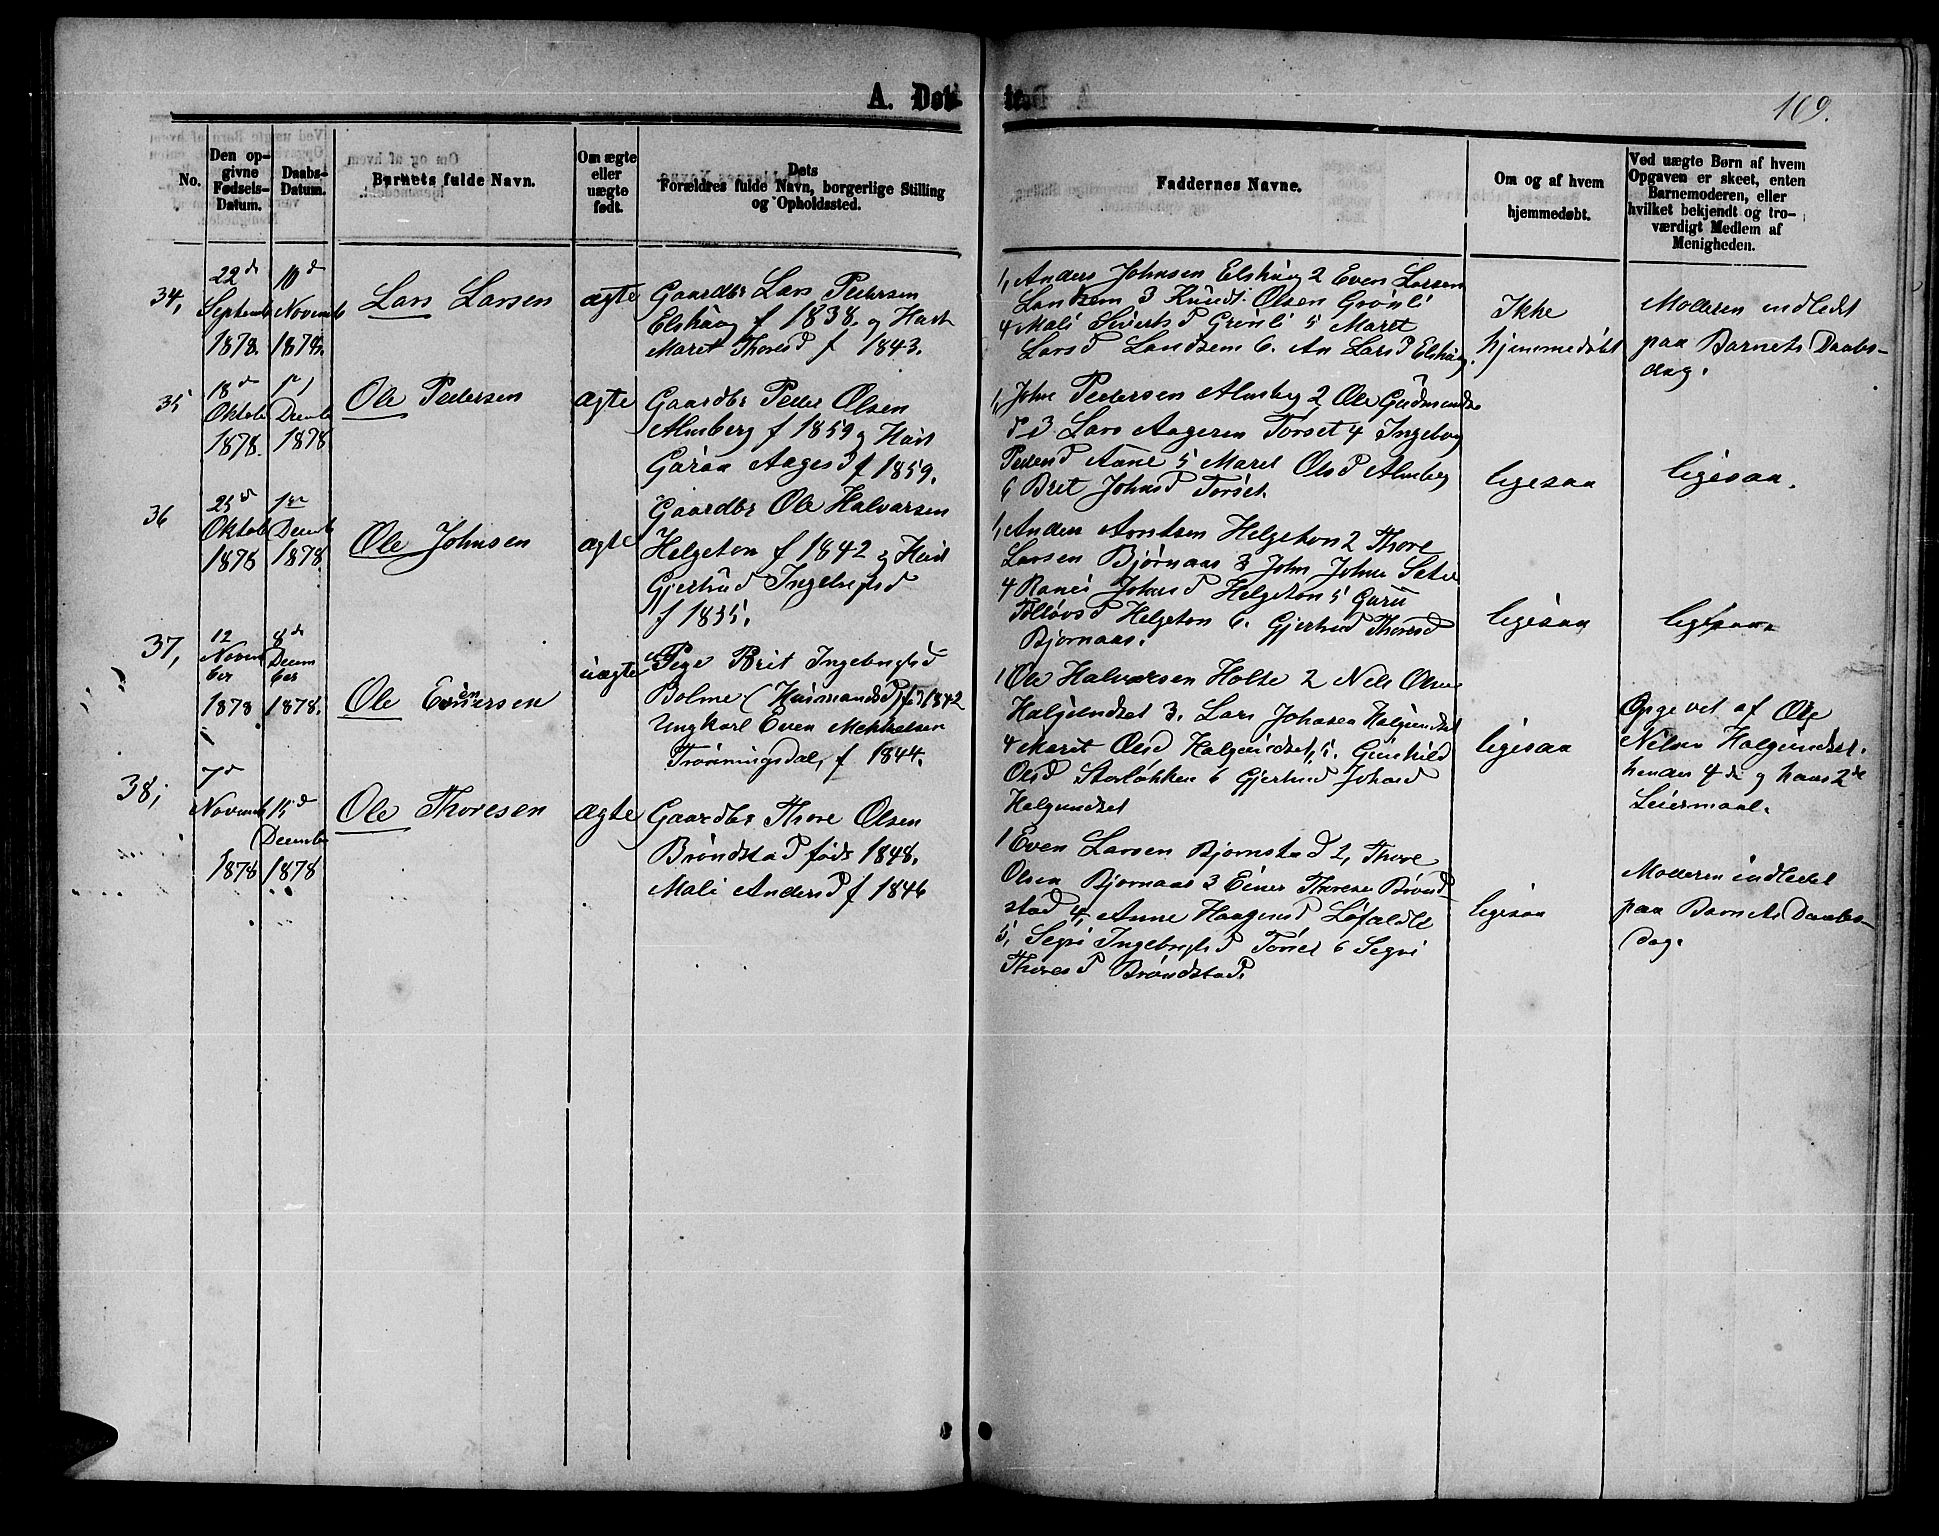 A. Døbte
169.
No.
Den opgivne Fødsels-Datum.
Daabs-Datum.
Barnets fulde Navn.
Om ægte eller uægte født.
Dets Forældres fulde Navn, borgerlige Stilling og Opholdssted.
Faddernes Navne.
Om og af hvem hjemmedøbt.
Ved uægte Børn af hvem Opgaven er skeet, enten Barnemoderen, eller hvilket bekjendt og troværdigt Medlem af Menigheden.
34,
22d Septemb 1878.
10d Novemb 1878.
Lars Larsen
ægte
Gaardbr Lars Pedersen
Elshaug f 1838. og Hust
Maret Thoresd f 1843.
1, Anders Johnsen Elshaug 2 Even Larsen
Landsem 3 Knud Olsen Grønli
4 Mali Sivertsd Grønli 5 Maret
Larsd Landsem 6. An Larsd Elshaug.
Ikke
hjemmedøbt
Moderen indledet
paa Barnets Daabs-
dag.
35
18d Oktob 1878.
1 Decmb 1878
Ole Pedersen
ægte
Gaardbr Peder Olsen
Almberg f 1859 og Hust
Guraa Aagesd f 1859.
1, John Pedersen Almberg 2 Ole Gudmunds
3 Lars Aagesen Torset 4 Ingebog
Pedersd Aune 5 Maret Olsd Almberg
6 Bret Johnsd Torset.
ligesaa
ligesaa.
36
25d Oktob 1878
1ste Decmb 1878
Ole Johnsen
ægte
Gaardbr Ole Halvorsen
Helgeton f 1842 og Hust
Gjertrud Ingebrigtsd
f 1835.
1, Anders Arntsen Helgeton 2 Thore
Larsen Bjørnaas 3 John Johns Sete
4 Ranei Johnsd Helgeton 5 Guru
Tolløvsd Helgeton 6. Gjertrud Thoresd
Bjørnaas.
ligesaa
ligesaa
37,
12 November 1878
8d December 1878.
Ole Evensen
uægte
Pige Brit Ingebrigtsd
Bolme (Husmandsd) f 1842
Ungkarl Even Mekkelsen
Trønningsdal, f 1844.
1 Ole Halvorsen Holte 2 Nels Olsen
Halgundset 3. Lars Johnsen Halgundset
4 Marit Olsd Halgundset, 5. Gunhild
Olsd Storløkken 6 Gjertrud Johnsd
Halgundset
ligesaa
Opgevet af Ole
Nelsen Halgundset.
hendes 4de og hans 2de
Leiermaal.
38,
7d Novemb 1878
15d Decembr 1878
Ole Thoresen
ægte
Gaardbr Thore Olsen
Brøndstad føds 1848.
Mali Andersd f 1846
1 Even Larsen Bjørnstad 2, Thore
Olsen Bjørnaas 3 Einer Thorese Brønd
stad 4, Anne Haagensd Løfaldle
5, Segri Ingebrigtsd Torset 6 Segri
Thoresd Brøndstad.
ligesaa
Moderen indledet
paa Barnets Daabs-
dag.